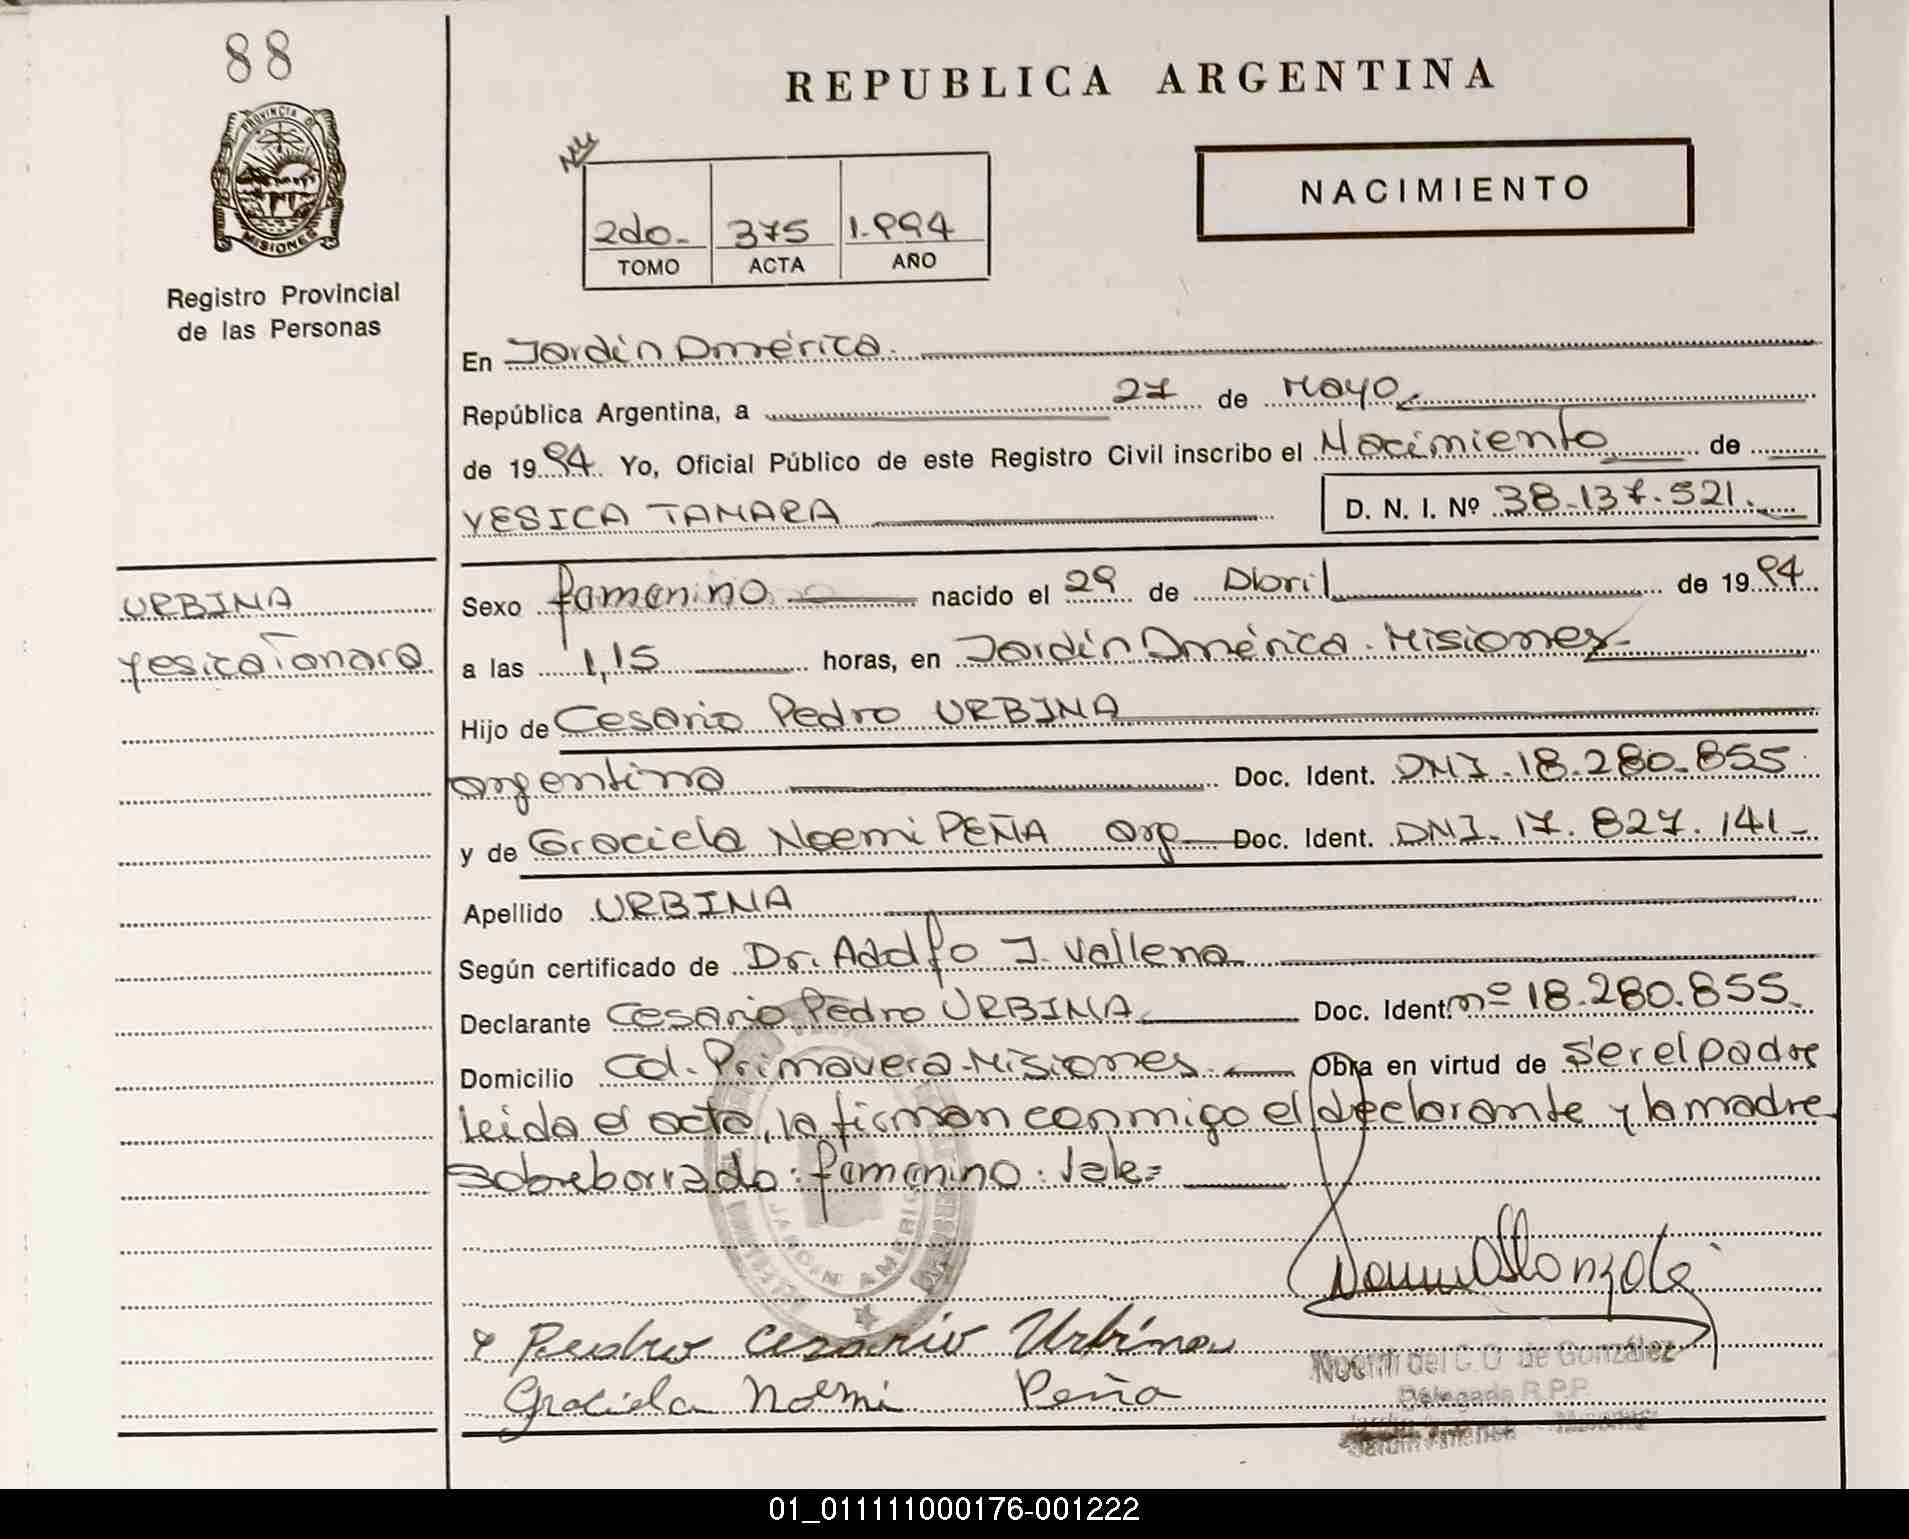 88
REPUBLICA ARGENTINA
PROVINCIA DE
MISIONES
NACIMIENTO
2do. 375 1.994
TOMO ACTA AÑO
Registro Provincial
de las Personas
En Jardín América.
República Argentina, a 27 de Mayo
de 1994. Yo, Oficial Público de este Registro Civil inscribo el Nacimiento de
YESICA TAMARA D. N. I. Nº 38.137.521.
URBINA
Yesica Tamara
Sexo famenino nacido el 29 de Abril de 1994
a las 1,15 horas, en Jardín América. Misiones
Hijo de Cesario Pedro URBINA
argentino Doc. Ident. DNI. 18.280.855
y de Graciela Noemi PEÑA arg Doc. Ident. DNI. 17.827.141
Apellido URBINA
Según certificado de Dr. Adolfo J. Vallena
Declarante Cesario Pedro URBINA Doc. Ident. nº 18.280.855.
Domicilio Col. Primavera-Misiones. Obra en virtud de ser el padre
leida el acta, la firman conmigo el declarante y la madre
sobreborrado: famenino: Vale=
JARDIN AMERICA
Pedro Cezario Urbina
Graciela Noemi Peña
Noemi del C.O. de González
Delegada R.P.P.
Jardín América - Misiones
01_011111000176-001222